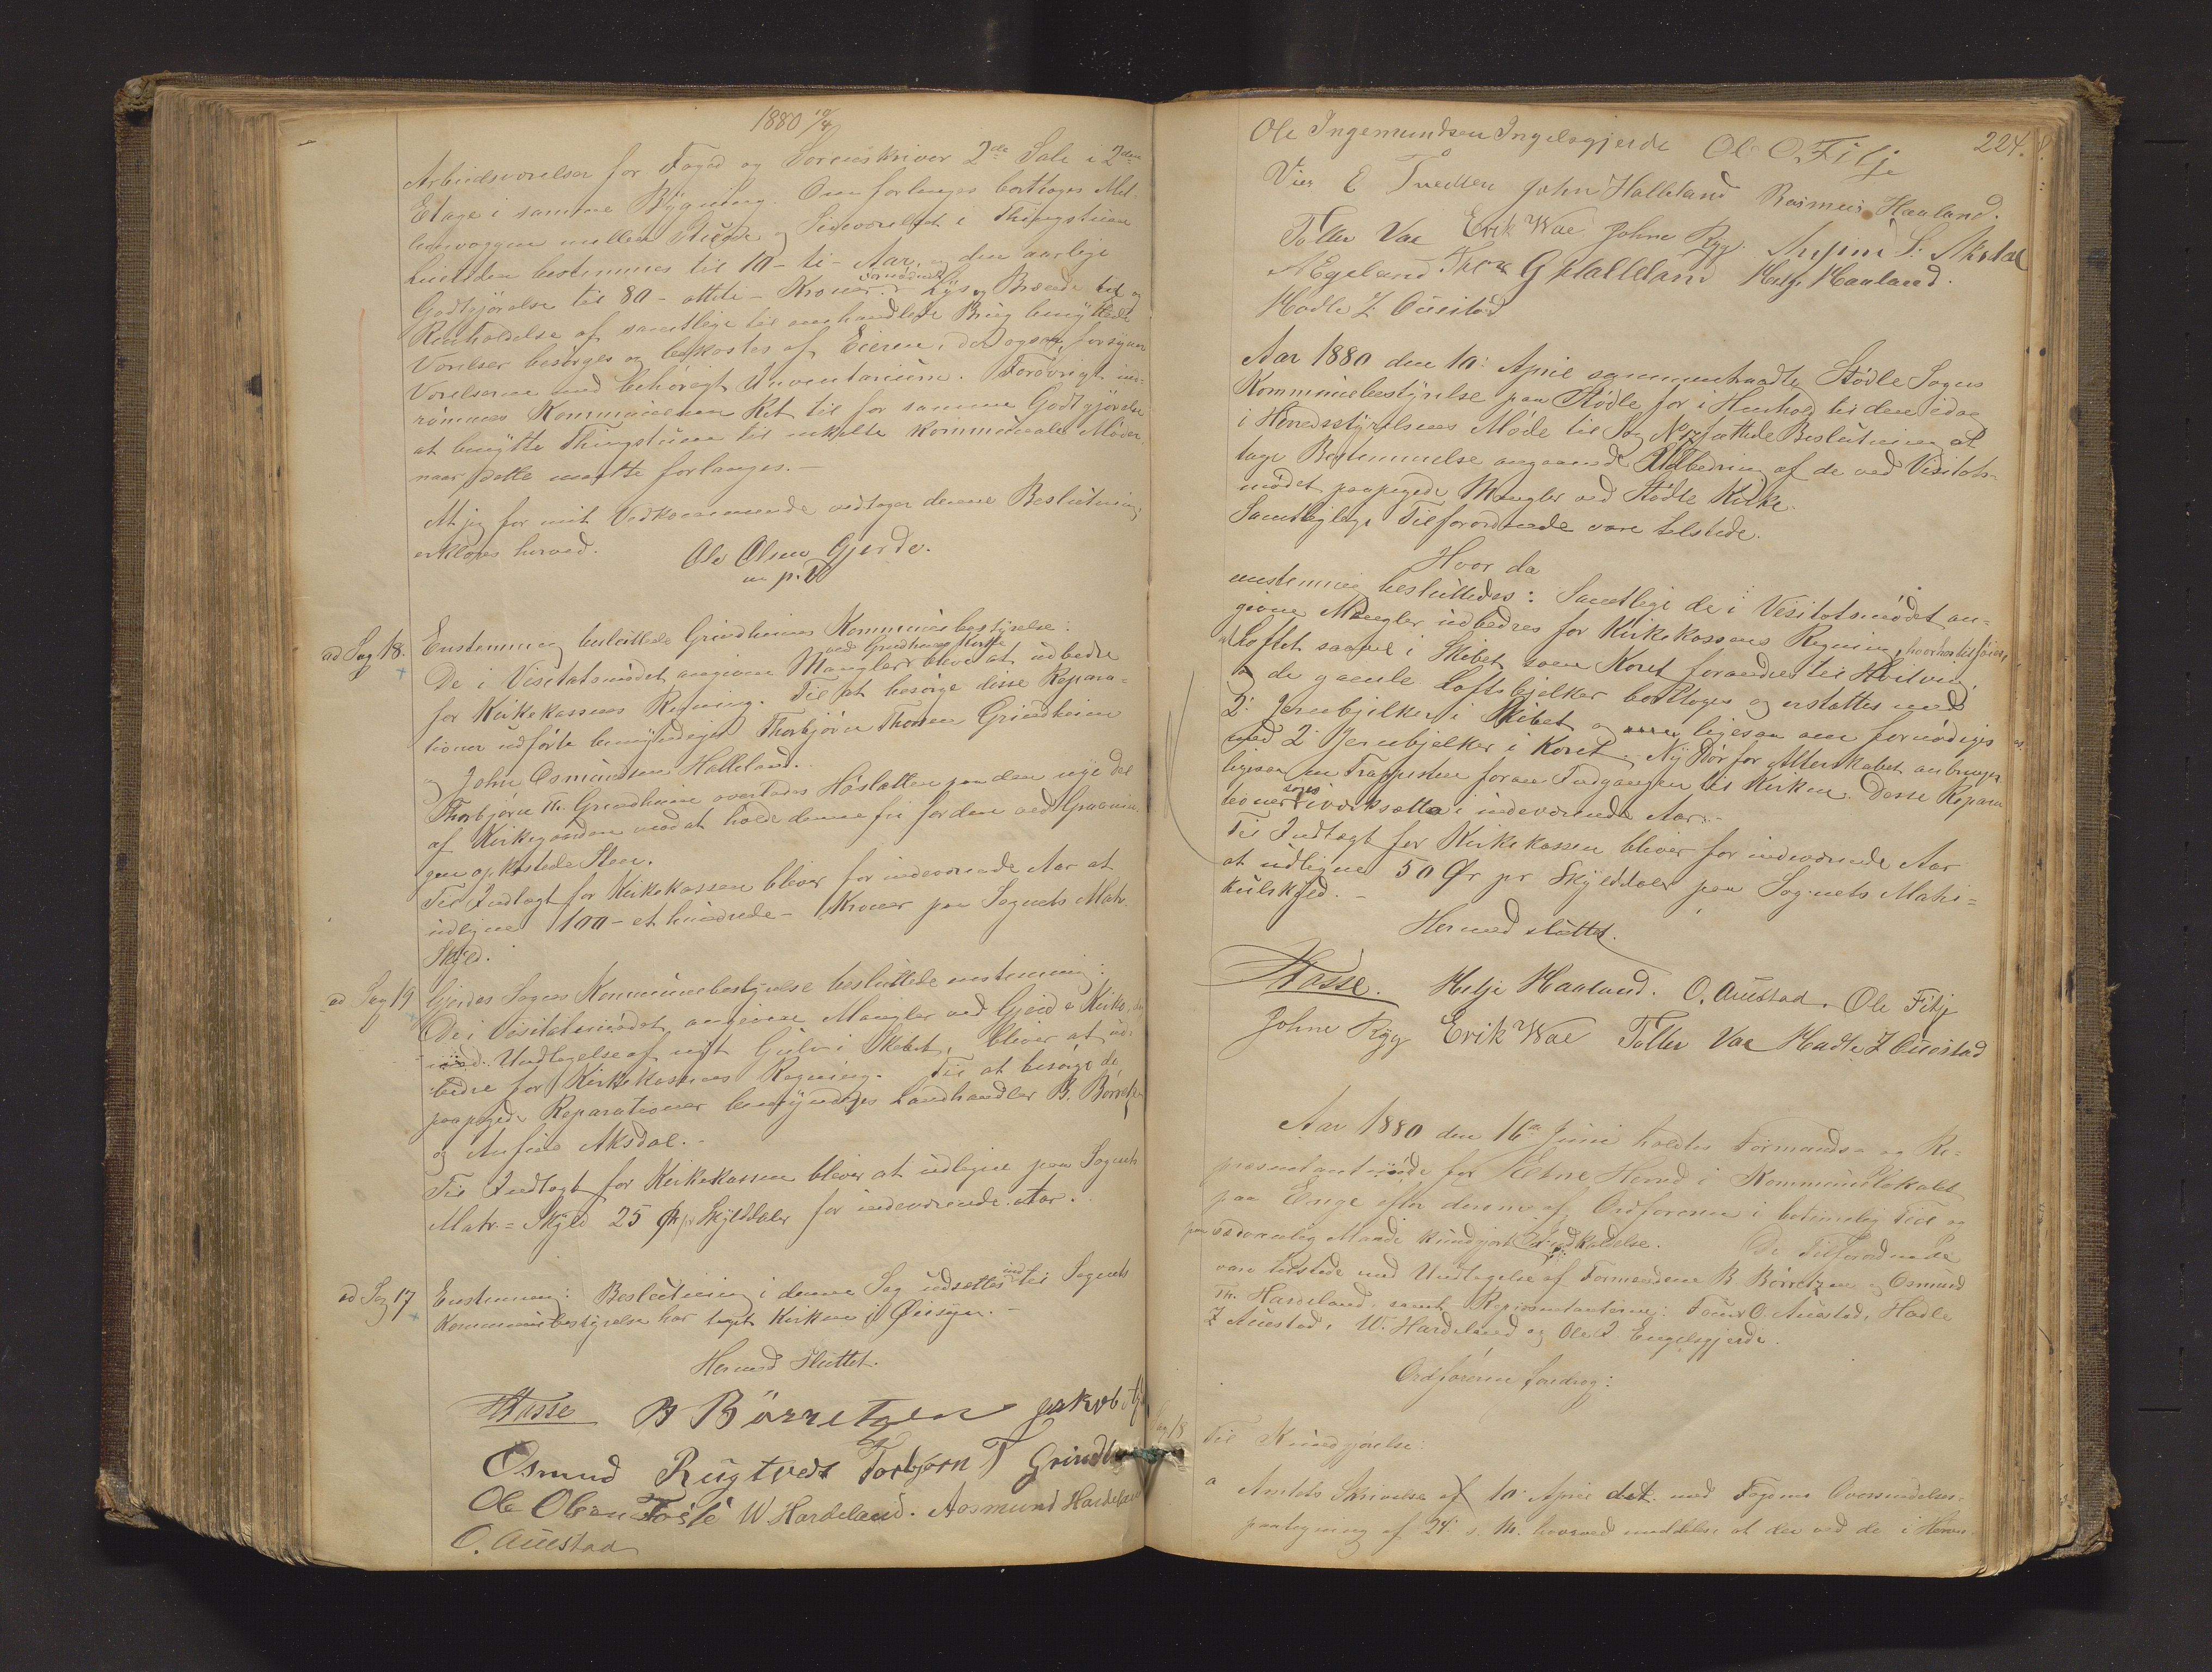 1880 10/4
Arbeidsværelser for Foged og Sorenskriver 2de Sale i 2den
Etage i samme Bygning. Om forlanges borttages Mel-
lemvæggen mellem Stuede og Sideværelset i Thingstuen
Leietiden bestemmes til 10 - ti - Aar, og den aarlige
Godtgjørelse til 80 - otteti - Kroner. Fornøden Lys og Brænde til og
Renholdelse af samtlige til omhandlede Brug benyttede
Værelser besørges og bekostes af Eieren, der ogsaa forsyner
Værelserne med behørigt Inventarium. Forøvrigt ind-
rømmes Kommunen Ret til for samme Godtgjørelse
at benytte Thingstuen til enkelte kommunale Møder
naar dette maatte forlanges. -
At jeg for mit Vedkommende vedtager denne Beslutning,
erklæres herved.
Ole Olsen Gjerde.
m p. P
ad Sag 18. Enstemmig besluttede Grindheims Kommunebestyrelse:
De i Visitatsmødet angivne Mangler ved Grindheims Kirke blive at udbedre
for Kirkekassens Regning. Til at besørge disse Repara-
tioner udførte bemyndiges Thorbjørn Thorsen Grindheim
og John Osmundsen Halleland.
Thorbjørn Th. Grindheim overlades Høslætten paa den nye Del
af Kirkegaarden mod at holde denne fri for den ved Gravnin-
gen opkastede Steen.
Til Indtægt for Kirkekassen bliver for indeværende Aar at
udligne 100 - et hundrede - Kroner paa Sognets Matr.
Skyld.
ad Sag 19 Gjerdes Sogns Kommunebestyrelse besluttede enstemmig:
De i Visitatsmødet angivne Mangler ved Gjerde Kirke,
med Undtagelse af nyt Gulv i Skibet, bliver at ud-
bedre for Kirkekassens Regning. Til at besørge de
paapegede Reparationer bemyndiges Landhandler B. Børretzen
og Anfind Aksdal. -
Til Indtægt for Kirkekassen bliver at udligne paa Sognets
Matr. = Skyld 25 Ør pr Skylddaler for indeværende Aar.
ad Sag 17 Enstemmig: Beslutning i denne Sag udsættes indtil Sognets
Kommunebestyrelse har taget Kirken i Øiesyn. -
Hermed Sluttet.
Hasse B Börretzen Jakob
Osmund Rügtvedt Torbjørn T Grindheim
Ole Olsen Tøsse W Hardeland. Aasmund Hardeland
O. Auestad
224.
Ole Ingemundsen Ingelsgjerde Ole O. Fitje
Vier E Tvedten John Halleland Rasmus Haaland.
Toller Vae Erik Wae Johne Rygg. Anfind S. Aksdal
A Egeland Thor G Halleland Helje Haaland.
Hadle Z. Auestad
Aar 1880 den 10: April sammentraadte Stødle Sogns
Kommunebestyrelse paa Stødle for i Henhold til den idag
i Herredsstyrelsens Møde til Sag No 17 fattede Beslutning at
tage Bestemmelse angaaende Udbedring af de ved Visitats-
mødet paapegede Mangler ved Stødle Kirke.
Samtlige Tilforordnede vare tilstede.
Hvor da
enstemmig besluttedes: Samtlige de i Visitatsmødet an-
givne Mangler udbedres for Kirkekassens Regning, hvorhos tilføies,
at Loftet saavel i Skibet som Koret forandres til Hvelving,
og de gamle Loftsbjelker borttages og erstattes med
2: Jernbjelker i Skibet og ligesaa om fornødiges
med 2 Jernbjelker i Koret. Ny Dør for Alterskabet anbringes
ligesaa en Trappesten foran Indgangen til Kirken. Desse Repara
tioner søges iværksatte i indeværende Aar. -
Til Indtægt for Kirkekassen bliver for indeværende Aar
at udligne 50 Ør pr Skylddaler paa Sognets Matri=
kulskyld. -
Hermed sluttet.
Hasse. Helje Haaland. O. Auestad. Ole Fitje
Johne Rygg Erik Wae Toller Vae Hadle Z Auestad
Aar 1880 den 16de Juni holdtes Formands- og Re-
præsentantmøde for Etne Herred i Kommunelokalet
paa Enge efter derom af Ordføreren i betimelig Tid og
paa sædvanlig Maade kundgjort Indkaldelse. De Tilforordnede
vare tilstede med Undtagelse af Formændene B. Børretzen og Osmund
Th. Hardeland, samt Repræsentanterne: O. Auestad, Hadle
Z Auestad, W. Hardeland og Ole I Engelsgjerde.
Ordføreren foredrog:
Sag 18 Til Kundgjørelse:
a Amtets Skrivelse af 10 April det. med Fogdens Oversendelses-
paategning af 24. s. M. hvorved meddeles at der ved de i Herre-